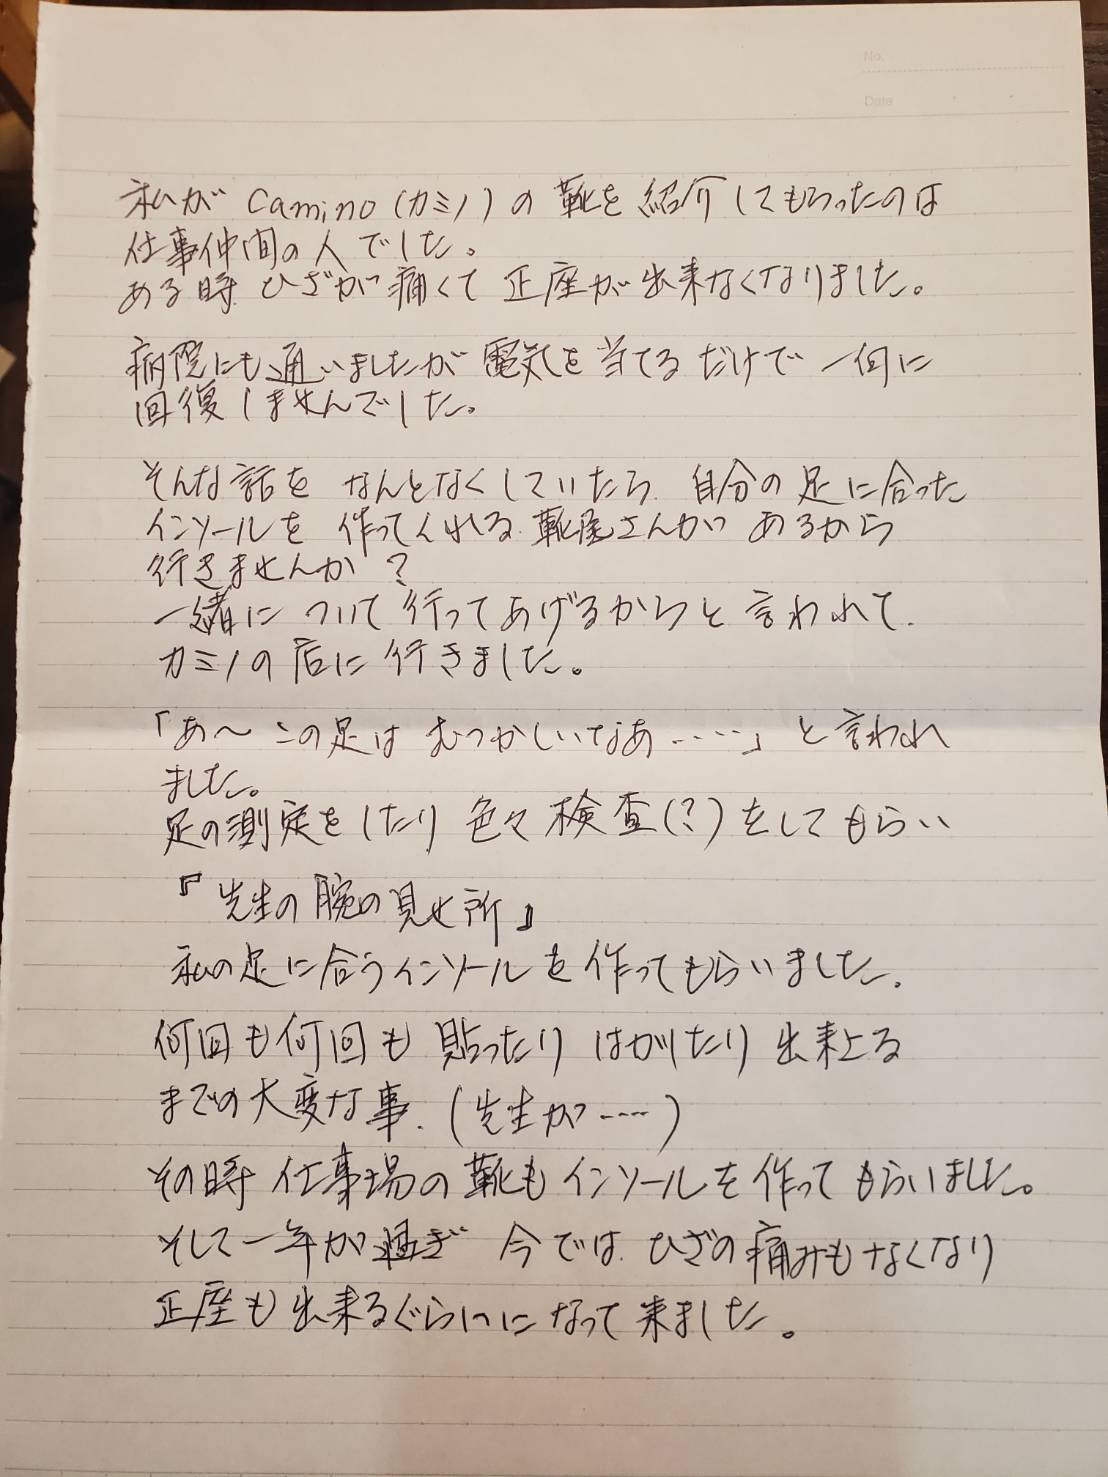 No.
Date
私が Camino(カミノ)の 靴を 紹介してもらったのは
仕事仲間の人でした。
ある時 ひざが痛くて 正座が出来なくなりました。
病院にも通いましたが 電気を当てるだけで 一向に
回復しませんでした。
そんな話を なんとなくしていたら 自分の足に合った
インソールを 作ってくれる 靴屋さんが あるから
行きませんか?
一緒に ついて行ってあげるからと言われて
カミノの店に行きました。
「あ〜 この足は むつかしいなあ‥‥」と言われ
ました。
足の測定をしたり 色々検査(?)をしてもらい
『先生の腕の見せ所』
私の足に合うインソールを作ってもらいました。
何回も何回も 貼ったり はがしたり 出来上る
までの大変な事.(先生が‥‥)
その時 仕事場の靴もインソールを作ってもらいました。
そして一年が過ぎ 今では ひざの痛みもなくなり
正座も出来るぐらいになって来ました。